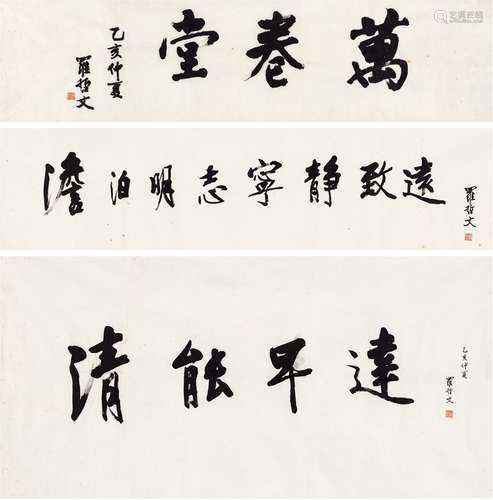 萬卷堂
乙亥仲夏
羅哲文
澹泊明志寧静致遠
羅哲文
清能早達
乙亥仲夏
羅哲文